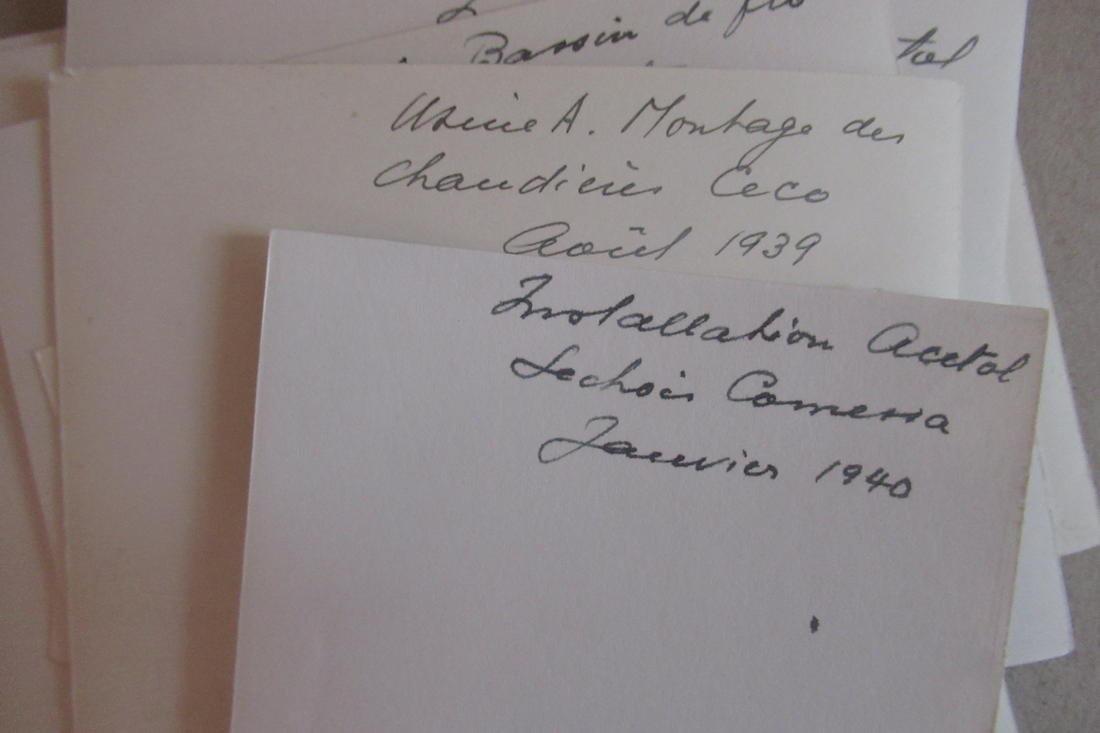 Bassin de flo
Usine A. Montage des
Chaudières Ceco
Août 1939
Installation Acetol
Sechoir Comessa
Janvier 1940